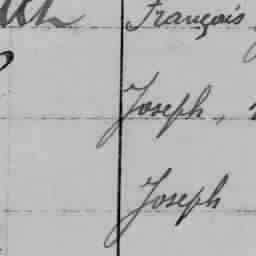 François
Joseph,
Joseph